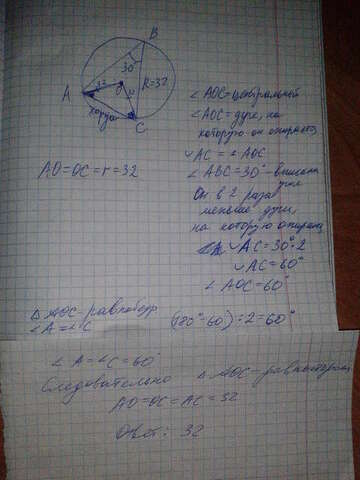 B
30°
R=32
32
O
A
хорда
C
∠AOC=центральный
∠AOC= дуге, на
которую он опирается
AO=OC=r=32
◡AC=∠AOC
∠ABC=30°-
Он в 2 раза
меньше дуги,
на которую опирается
◡AC=30°·2
◡AC=60°
∠AOC=60°
△AOC-равнобедр.
∠A=∠C
(180°-60°):2=60°
∠A=∠C=60°
Следовательно △AOC-равносторон
AO=OC=AC=32
Ответ: 32